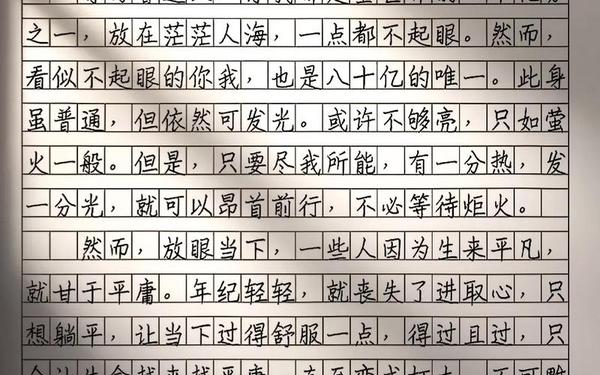 之一，放在茫茫人海，一点都不起眼。然而，
看似不起眼的你我，也是八十亿的唯一。此身
虽普通，但依然可发光。或许不够亮，只如萤
火一般。但是，只要尽我所能，有一分热，发
一分光，就可以昂首前行，不必等待炬火。
然而，放眼当下，一些人因为生来平凡，
就甘于平庸。年纪轻轻，就丧失了进取心，只
想躺平，让当下过得舒服一点，得过且过，只